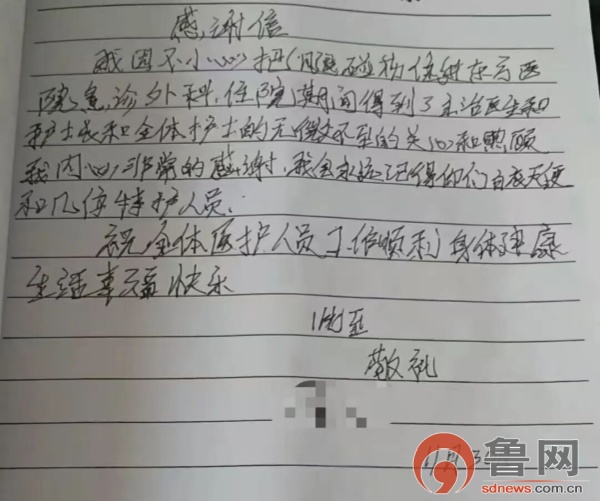 感谢信
我因不小心把腿碰伤住进在云医
院急诊外科,住院期间得到了主治医生和
护士长和全体护士的无微不至的关心和照顾
我内心非常的感谢.我会永远记得你们白衣天使
和几位特护人员.
祝全体医护人员工作顺利身体健康
生活幸福快乐
此至
敬礼
11月3
鲁网
sdnews.com.cn